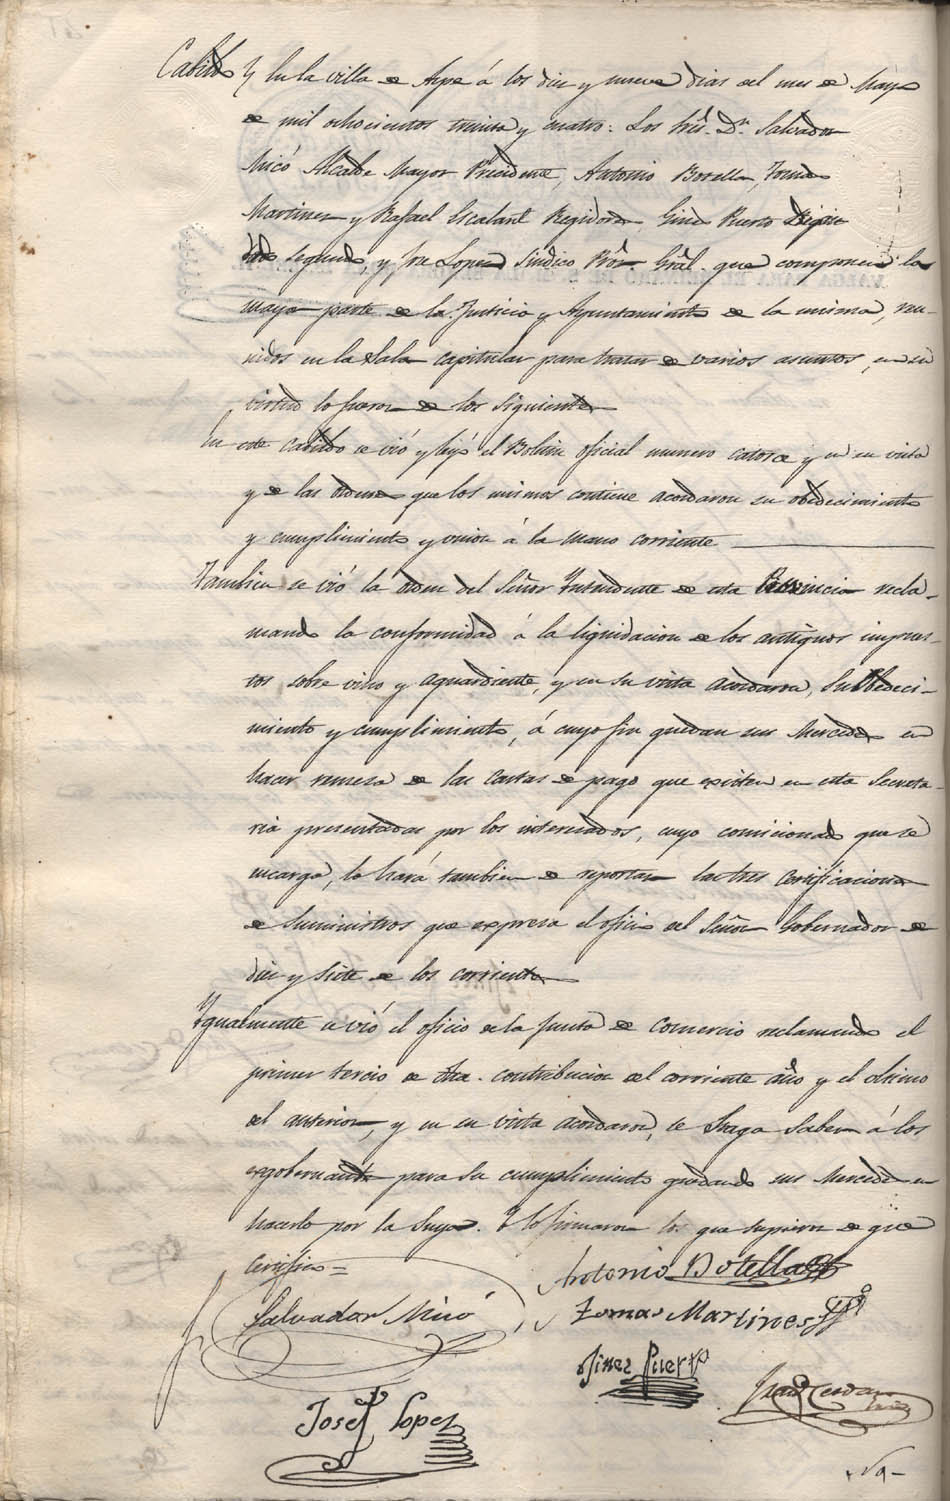 Cabildo Y En la villa de Aspe á los diez y nueve dias del mes de Mayo
de mil ochocientos treinta y cuatro: Los Sres. Dn. Salvador
Micó Alcalde Mayor Presidente, Antonio Botella, Tomas
Martinez y Rafael Escalant Regidores, Gines Puerto
segundo, y Jose Lopez Sindico Pror. Gral. que componen la
mayor parte de la Justicia y Ayuntamiento de la misma, reu-
nidos en la Sala capitular para tratar de varios asuntos, en su
virtud lo fueron de los siguientes
En este cabildo se vió y leyó el Boletin oficial numero catorce y en su vista
y de las ordenes que los mismos contiene acordaron su obedecimiento
y cumplimiento y union á la mano corriente
Tambien se vió la orden del Señor Intendente de esta Provincia recla-
mando la conformidad á la liquidacion de los antiguos impues-
tos sobre vino y aguardiente, y en su vista acordaron, su obedeci-
miento y cumplimiento, á cuyo fin quedan sus Mercedes en
hacer remesa de las Cartas de pago que existen en esta Secreta-
ria presentadas por los interesados, cuyo comicionado que se
encarga, lo hará tambien de reportar las tres Certificaciones
de Suministros que expresa el oficio del Señor Gobernador de
diez y siete de los corrientes
Ygualmente se vió el oficio de la Junta de Comercio reclamando el
primer tercio de dha. contribucion del corriente año y el ultimo
del anterior, y en su vista acordaron, se haga saber á los
exgobernantes para su cumplimiento quedando sus Mercedes en
hacerlo por la Suya. Y lo firmaron los que supieron de que
Certifico=
Antonio Botella
Salvador Micó
Tomas Martines
Jines Puerto
Jose Lopez